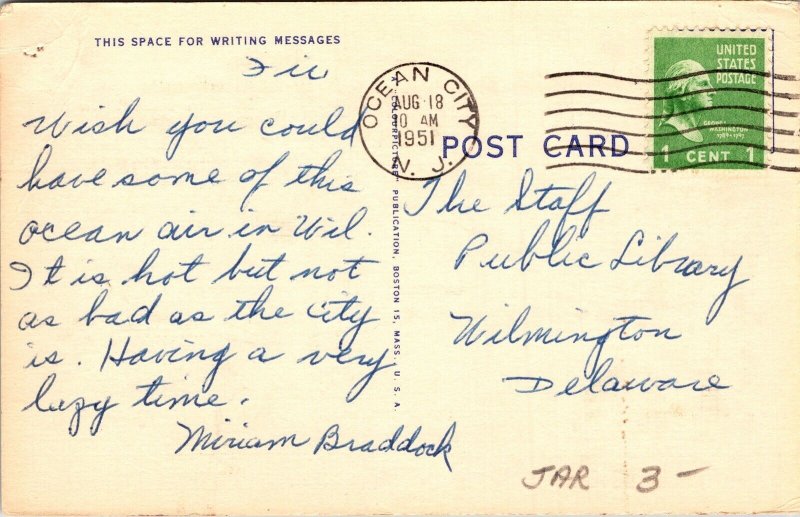 THIS SPACE FOR WRITING MESSAGES
Fri
Wish you could
have some of this
ocean air in Wil.
It is hot but not
as bad as the city
is. Having a very
lazy time.
Miriam Braddock
COLOURPICTURE PUBLICATION, BOSTON 15, MASS., U. S. A.
OCEAN CITY
AUG 18
AM
1951
N. J.
UNITED
STATES
POSTAGE
GEORGE
WASHINGTON
1789-1797
1 CENT 1
POST CARD
The Staff
Public Library
Wilmington
Delaware
JAR 3-